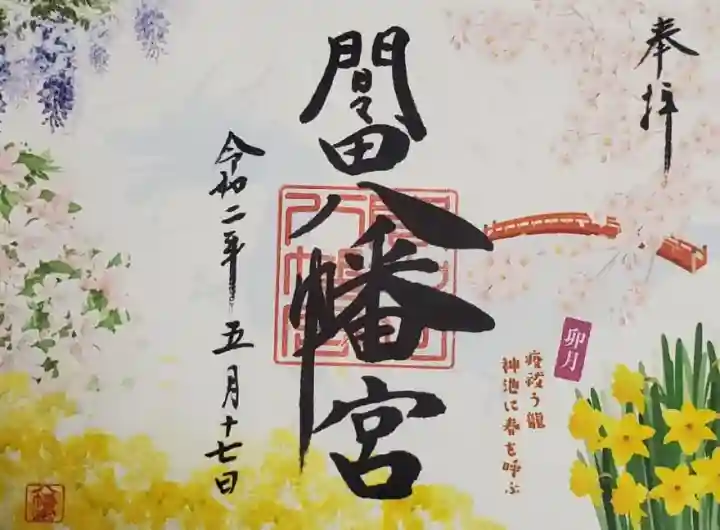 奉拝
間々田八幡宮
卯月
疫祓う龍
神池に春を呼ぶ
令和二年五月十七日